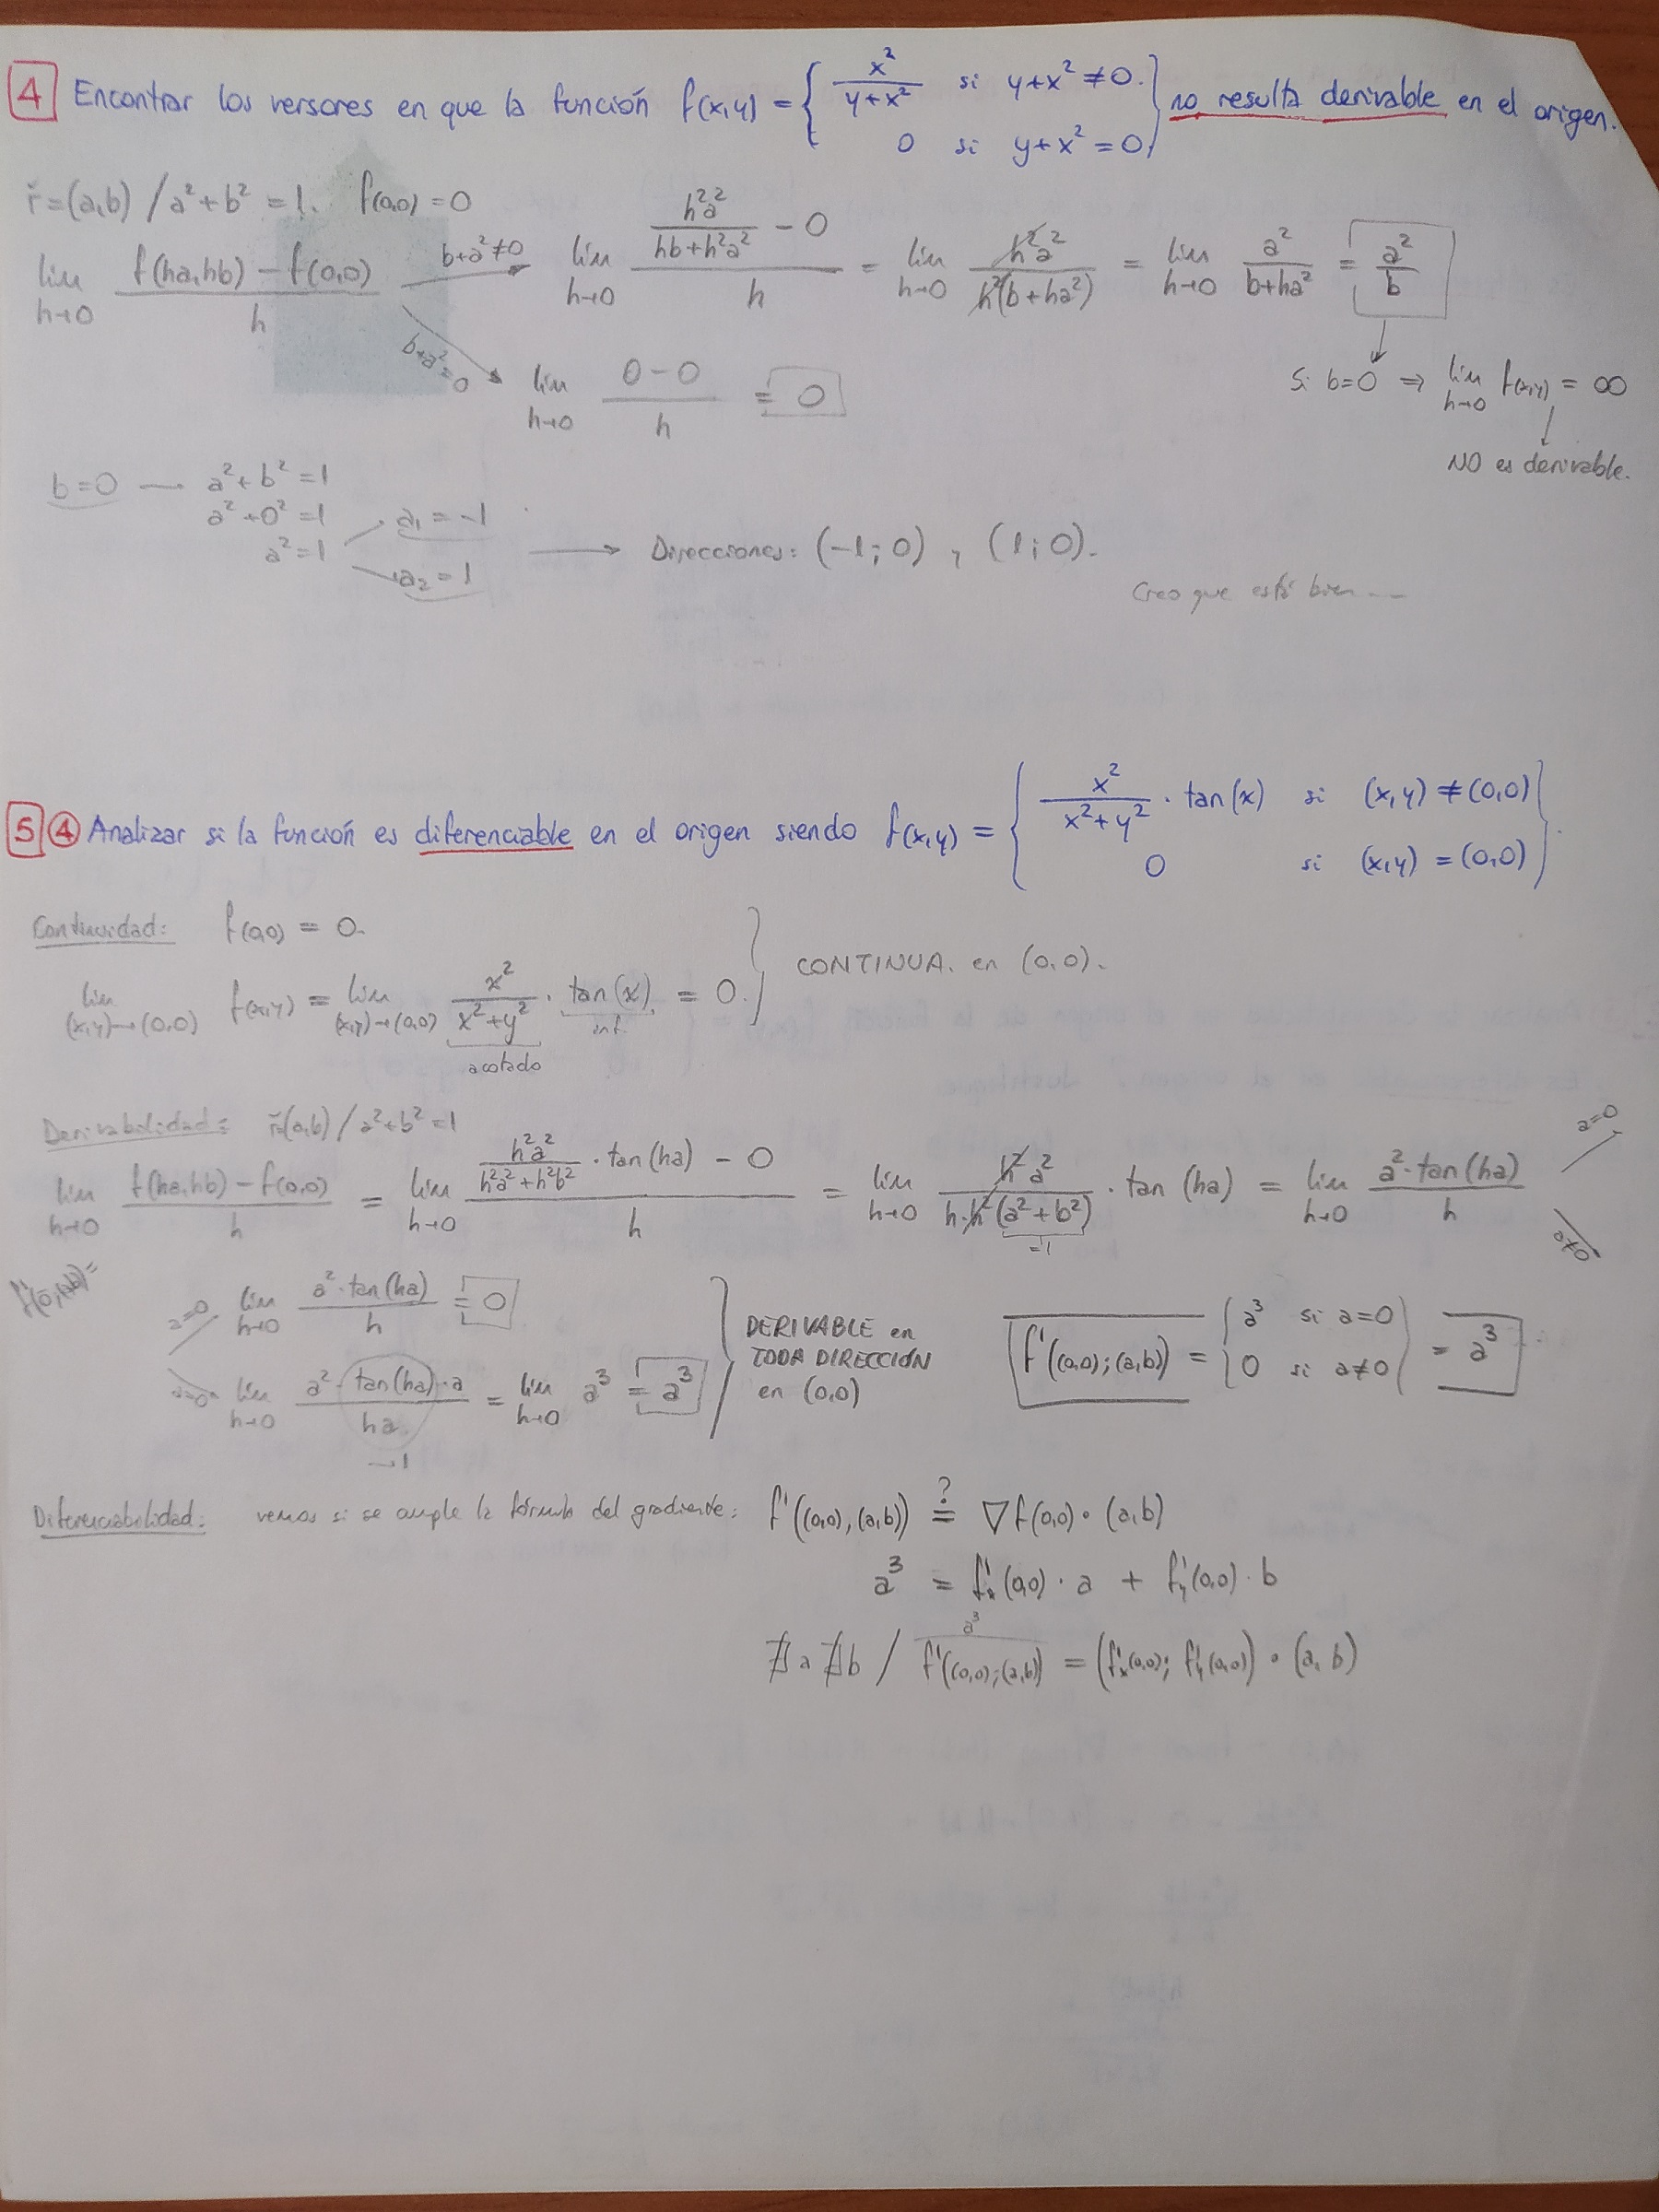 4 Encontrar los versores en que la función f(x,y) = { x²/(y+x²) si y+x² ≠ 0. no resulta derivable en el origen.
0 si y+x² = 0 }
ř=(a,b) / a²+b² = 1. f(0,0) = 0
lim h→0 (f(ha,hb) − f(0,0))/h b+a²≠0 → lim h→0 (h²a²/(hb+h²a²) − 0)/h = lim h→0 h²a²/(h²(b+ha²)) = lim h→0 a²/(b+ha²) = a²/b
b+a²=0 → lim h→0 (0−0)/h = 0
Si b=0 ⇒ lim h→0 f(x,y) = ∞
NO es derivable.
b=0 — a²+b²=1
a²+0²=1
a²=1
a₁ = −1
a₂ = 1
→ Direcciones: (−1;0) , (1;0).
Creo que está bien...
5 ④ Analizar si la función es diferenciable en el origen siendo f(x,y) = { x²/(x²+y²) · tan(x) si (x,y) ≠ (0,0)
0 si (x,y) = (0,0) }.
Continuidad: f(0,0) = 0.
lim (x,y)→(0,0) f(x,y) = lim (x,y)→(0,0) x²/(x²+y²) · tan(x) = 0. } CONTINUA. en (0,0).
acotado inf.
Derivabilidad: ř(a,b) / a²+b²=1
lim h→0 (f(ha,hb) − f(0,0))/h = lim h→0 (h²a²/(h²a²+h²b²) · tan(ha) − 0)/h = lim h→0 h²a²/(h·h²(a²+b²)) · tan(ha) = lim h→0 a²·tan(ha)/h
=1
a=0
a≠0
a=0 lim h→0 a²·tan(ha)/h = 0
a≠0 lim h→0 a²·tan(ha)·a/ha = lim h→0 a³ = a³
→1
} DERIVABLE en
TODA DIRECCIÓN
en (0,0)
f'((0,0);(a,b)) = { a³ si a=0
0 si a≠0 } = a³
Diferenciabilidad: vemos si se cumple la fórmula del gradiente: f'((0,0),(a,b)) =? ∇f(0,0)·(a,b)
a³ = f'x(0,0)·a + f'y(0,0)·b
a³
∄a ∄b / f'((0,0);(a,b)) = (f'x(0,0); f'y(0,0))·(a,b)